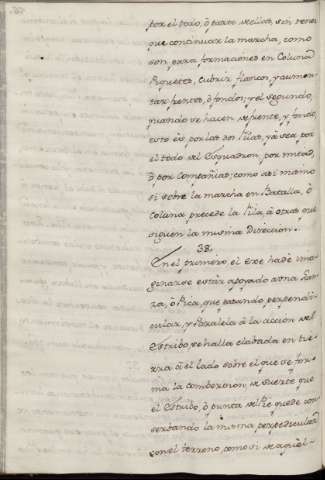 por el todo, ô parte de ellas, sin tener
que continuar la marcha, como
son para formaciones en Coluna
Piquetes, cubrir flancos, y aumen-
tar frentes, ô fondos, y el segundo,
quando se hacen de frente, y fondo,
esto és por las dos filas, yá sea por
el todo del Esquadron, por mitad,
ô por Compañias; como asi mismo
si sobre la marcha en Batalla, ô
Coluna precede la fila, â otras que
siguen la misma Direccion.
38.
En el primero, el exe hade ima-
ginarse estár apoyado a una
ô Pica, que estando perpendi-
cular, y Paralela â la accion del
Estribo, se halla clabada en tie-
rra â el lado sobre el que se for-
ma la combersion, de suerte que
el Estribo, ô punta del Pie quede con-
serbando la misma perpendicular
con el terreno, como si de aquel